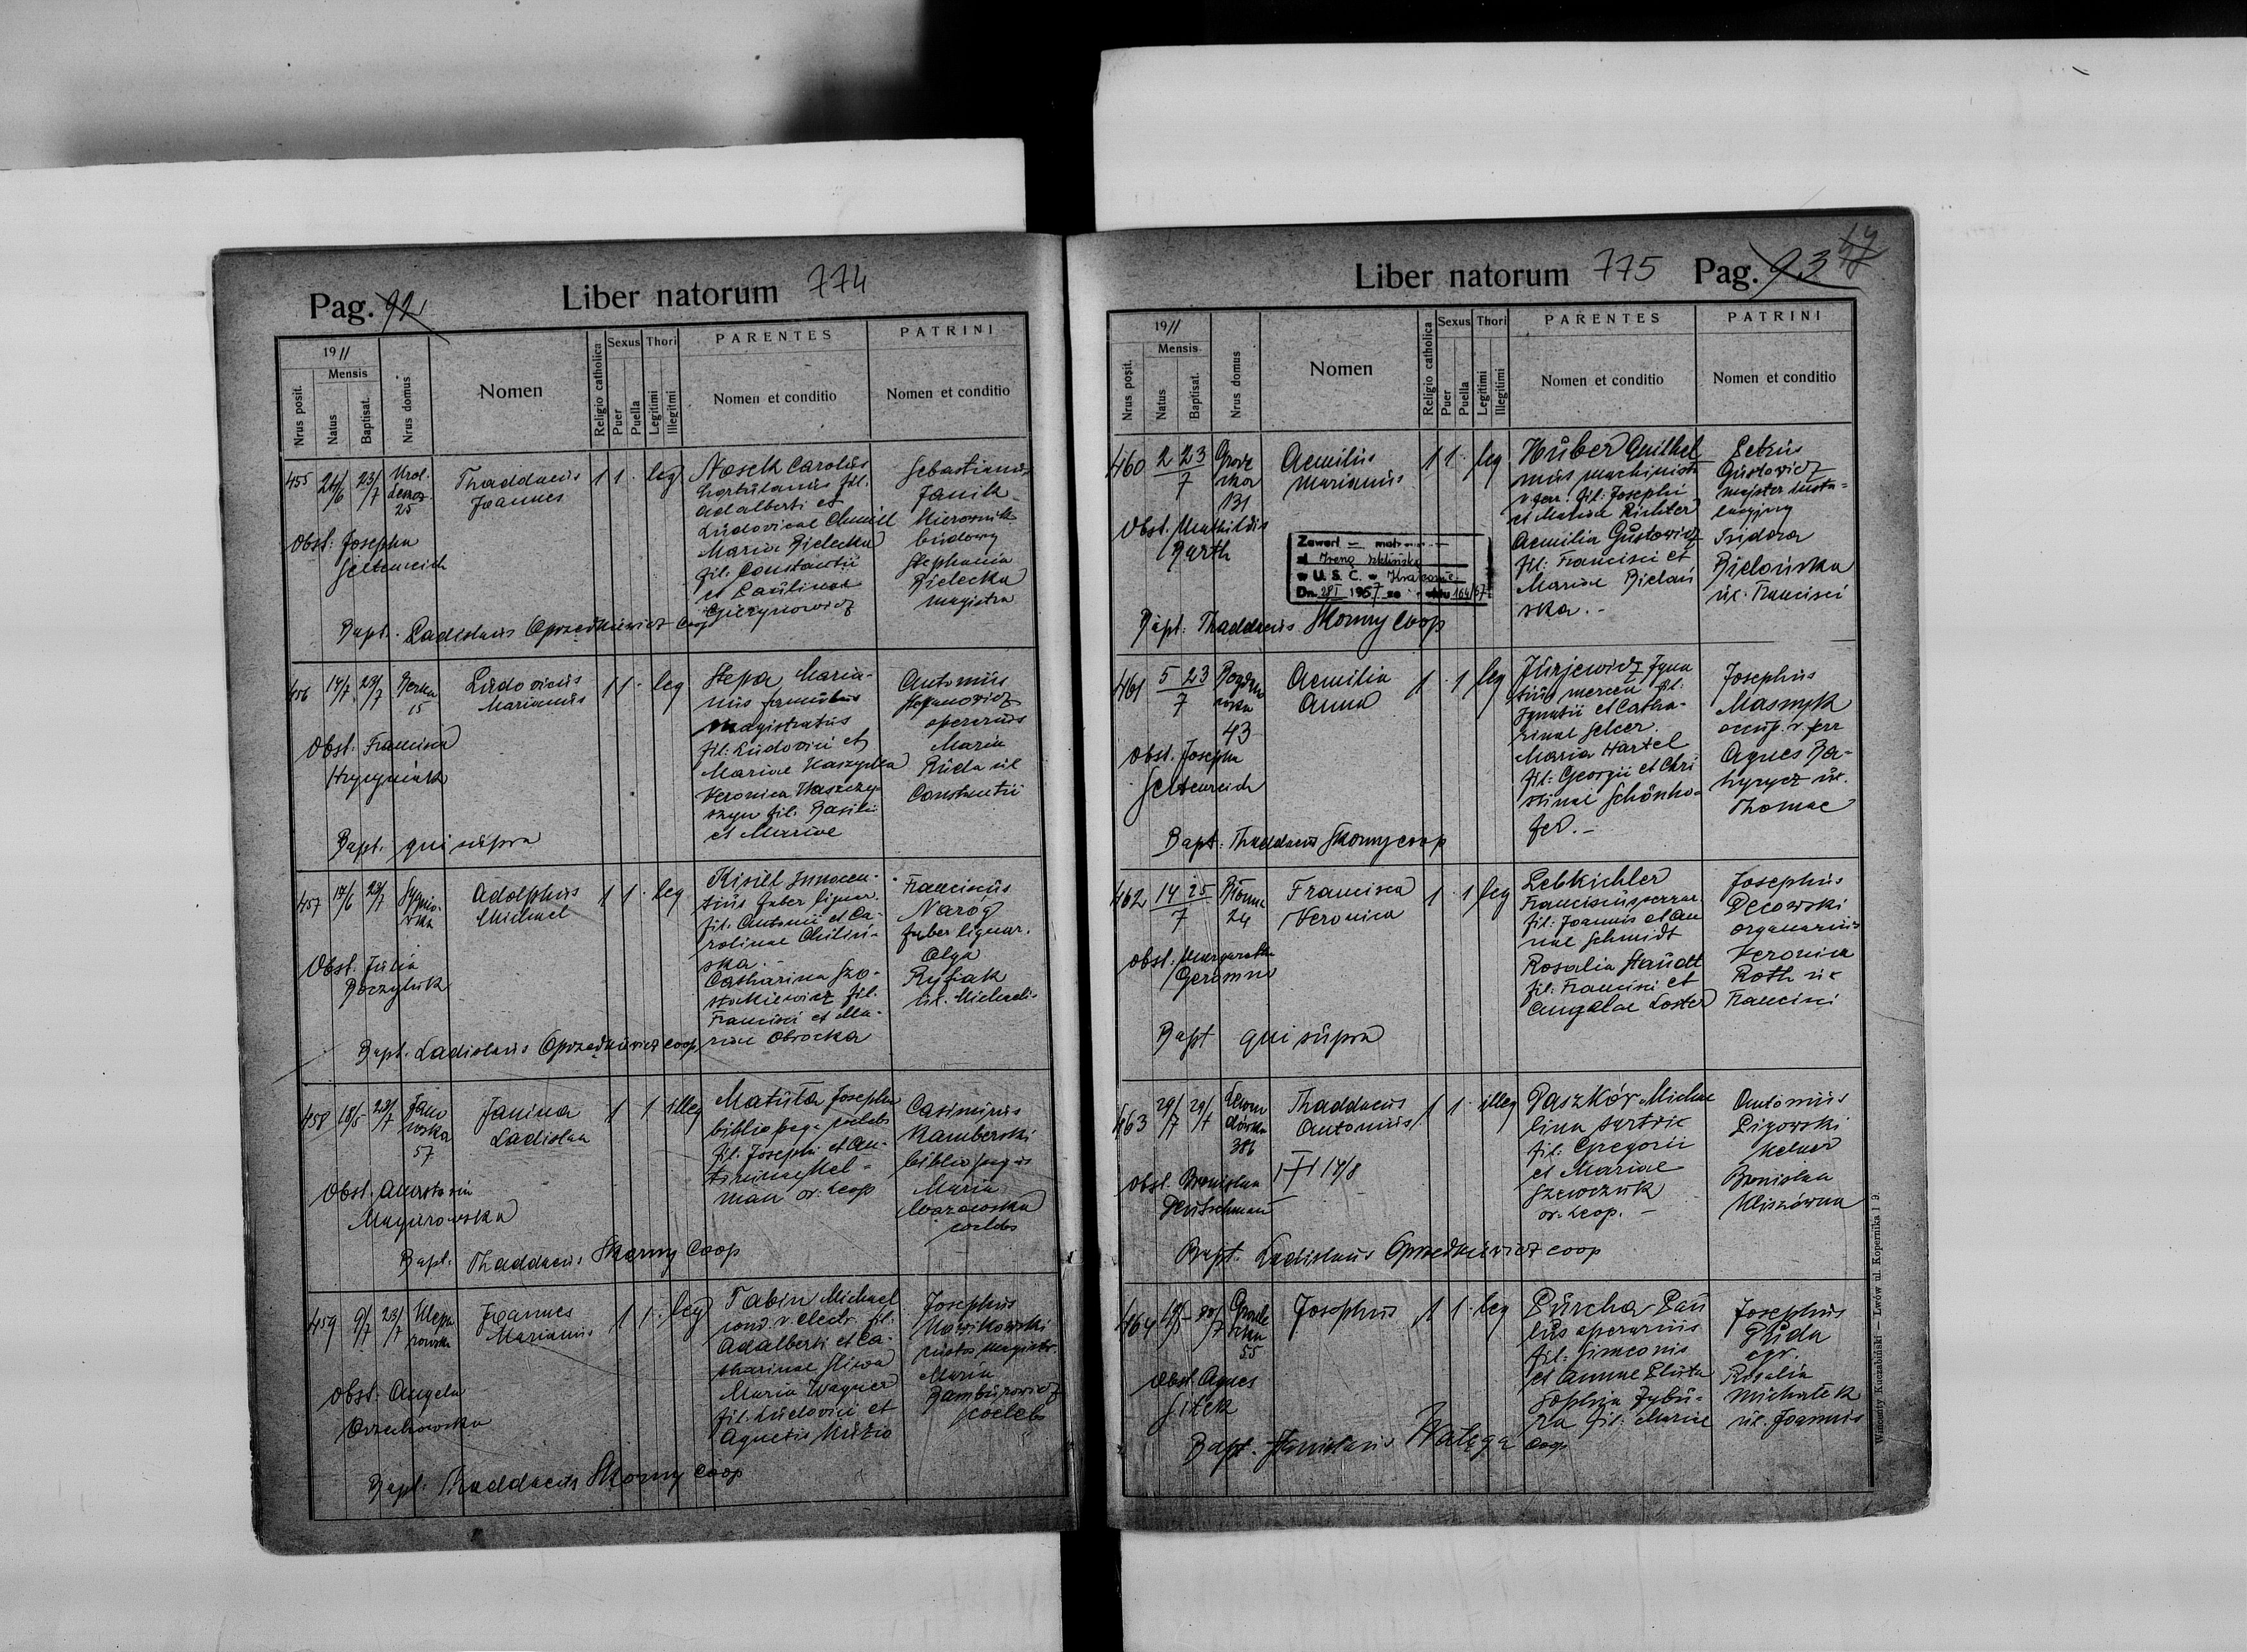 Pag. 92
Liber natorum 774
1911
Mensis
Nrus posit.
Natus
Baptisat.
Nrus domus
Nomen
Religio catholica
Sexus
Puer
Puella
Thori
Legitimi
Illegitimi
PARENTES
Nomen et conditio
PATRINI
Nomen et conditio
455
23/7
25
Thaddaeus
Joannes
1 1 leg
Nosek Carolus
hortulanus fil.
Adalberti et
Ludovicae Chmiel
Maria Bielecka
fil. Constantii
et Paulinae
Sebastianus
Janik
kierownik
budowy
Stephania
Bielecka
magistra
Obst: Josepha
Bapt. Ladislaus Oprzędkiewicz coop
456
14/7
23/7
15
Ludovicus
Marianus
1 1 leg
Stepa Maria-
nus famulus
magistratus
fil. Ludovici et
Mariae
Veronica
fil. Basilii
et Mariae
Antonius
Stefanowicz
operarius
Maria
Ruda ux
Constantii
Obst. Francisca
Bapt. qui supra
457
17/6
23/7
Adolphus
Michael
1 1 leg
Kisiel Innocen-
tius faber lignar.
fil. Antonii et Ca-
rolinae
ska.
Catharina Szo-
stakiewicz fil.
Francisci et Ma-
riae Obrocka
Franciscus
Naróg
faber lignar.
Olga
Rybak
ux. Michaelis
Obst. Julia
Bapt. Ladislaus Oprzędkiewicz coop
458
18/5
23/7
Jano
wska
57
Janina
Ladislaa
1 1 illeg
Matuła Josepha
bibliopega coelebs
fil. Josephi et An-
toninae Hel-
man or. Leop
Casimirus
Kamberski
bibliopegus
Maria
Morawska
coelebs
Obst. Anastasia
Magurowska
Bapt. Thaddaeus Skorny Coop
459
9/7
23/7
Klepa
rowska
Joannes
Marianus
1 1 leg
Tabin Michael
cond. v. electr. fil.
Adalberti et Ca-
tharinae Sliwa
Maria Wagner
fil. Ludovici et
Agnetis
Josephus
Nowikowski
custos magistr.
Maria
Bamburowicz
coelebs
Obst. Angela
Orzechowska
Bapt. Thaddaeus Skorny coop
Liber natorum 775 Pag. 93
1911
Mensis
Nrus posit.
Natus
Baptisat.
Nrus domus
Nomen
Religio catholica
Sexus
Puer
Puella
Thori
Legitimi
Illegitimi
PARENTES
Nomen et conditio
PATRINI
Nomen et conditio
460
2 23
7
Grode
cka
131
Aemilius
Marianus
1 1 leg
Huber Guilhel
mus machinista
v. ferr. fil: Josephi
et Mariae Richter
Aemilia Gustowicz
fil: Francisci et
Mariae Bielań
ska.-
Petrus
Gustowicz
majster insta-
lacyjny
Isidora
Bielańska
ux. Francisci
Obst. Mathildis
Barth
Zawarł
w U. S. C. w Krakowie
Dn. 28 I 1957 164/57
Bapt: Thaddaeus Skorny Coop
461
5 23
7
Bogda
nówka
43
Aemilia
Anna
1 1 leg
Jurjewicz Igna
tius mercen fil:
Ignatii et Catha-
rinae
Maria Hartel
fil: Georgii et Chri
stinae Schönho-
fer.-
Josephus
Masnyk
occup. v. ferr
Agnes Ba-
ux.
Thomae
Obst. Josepha
Bapt: Thaddaeus Skorny coop
462
14 25
7
Błonna
24
Francisca
Veronica
1 1 leg
Lebkichler
Franciscus
fil: Joannis et An
nae Schmidt
Rosalia Staudt
fil: Francisci et
Angelae Koster
Josephus
Decowski
organarius
Veronica
Roth ux
Francisci
Obst: Margaretha
Bapt qui supra
463
29/7
29/7
386
Thaddaeus
Antonius
1 1 illeg
Paszkór Michae
lina sartrix
fil: Gregorii
et Mariae
Szewczuk
or. Leop. -
Antonius
Ligowski
kelner
Bronislaa
Kliszówna
14/8
Obst. Bronislaa
Deutschman
Bapt. Ladislaus Oprzedkiewicz coop
464
Grode
cka
55
Josephus
1 1 leg
Purcha Pau
lus operarius
fil: Simeonis
et Annae Pluta
Sophia Zybu-
ra fil. Mariae
Josephus
Duda
agr.
Rosalia
Michałek
ux. Joannis
Obst. Agnes
Sitek
Bapt. Stanislaus Wałęga coop
Lwów ul. Kopernika l 9.